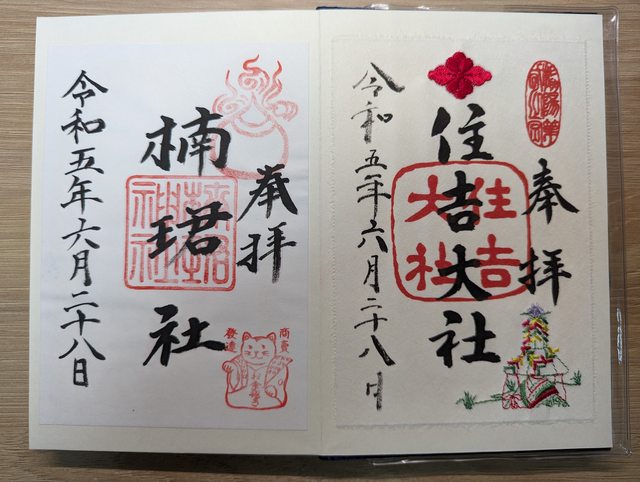 奉拝
住吉大社
住吉
大社
令和五年六月二十八日
奉拝
楠珺社
商売
発達
令和五年六月二十八日